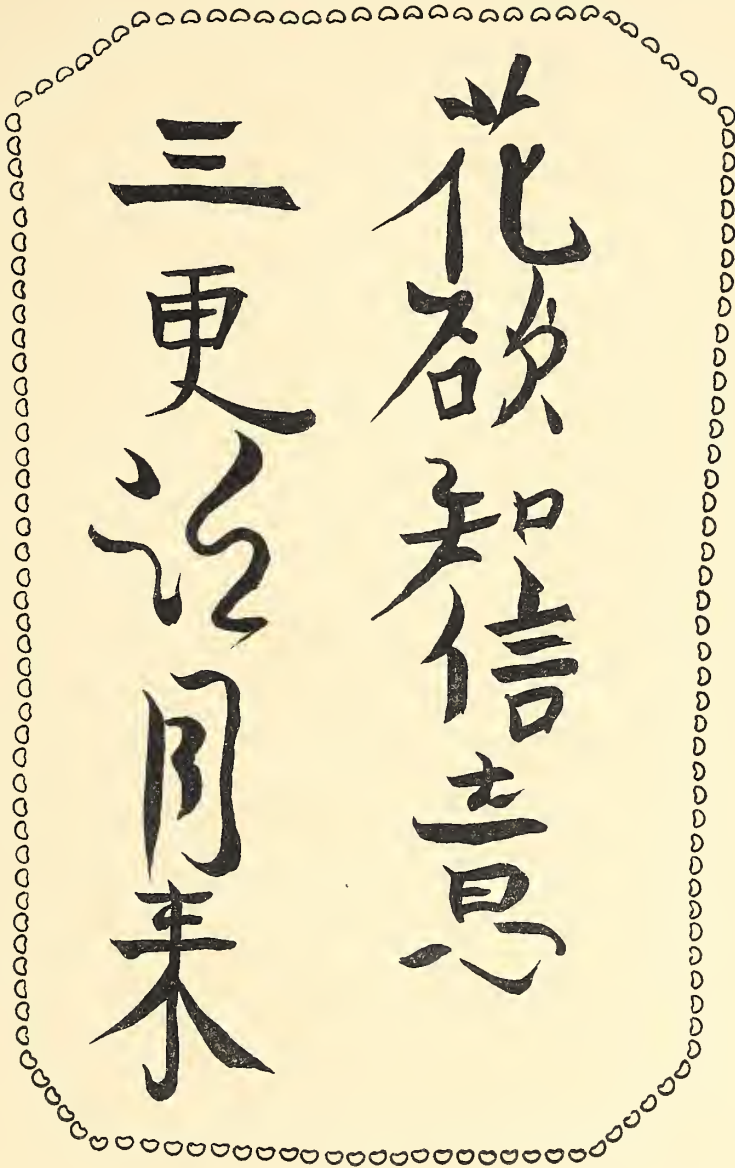 花欲知信意
三更記月来